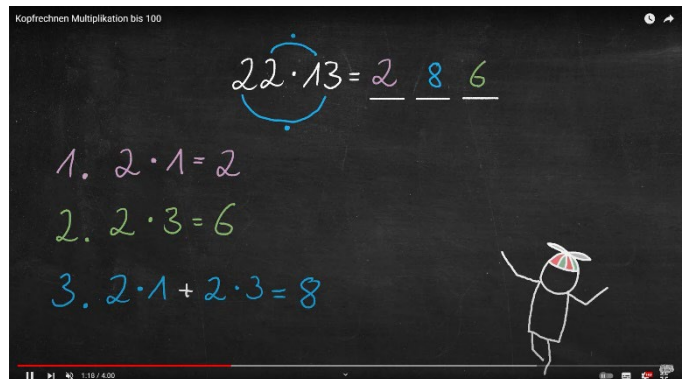 Kopfrechnen Multiplikation bis 100
22 · 13 = 2 8 6
1. 2 · 1 = 2
2. 2 · 3 = 6
3. 2 · 1 + 2 · 3 = 8
1:18 / 4:00